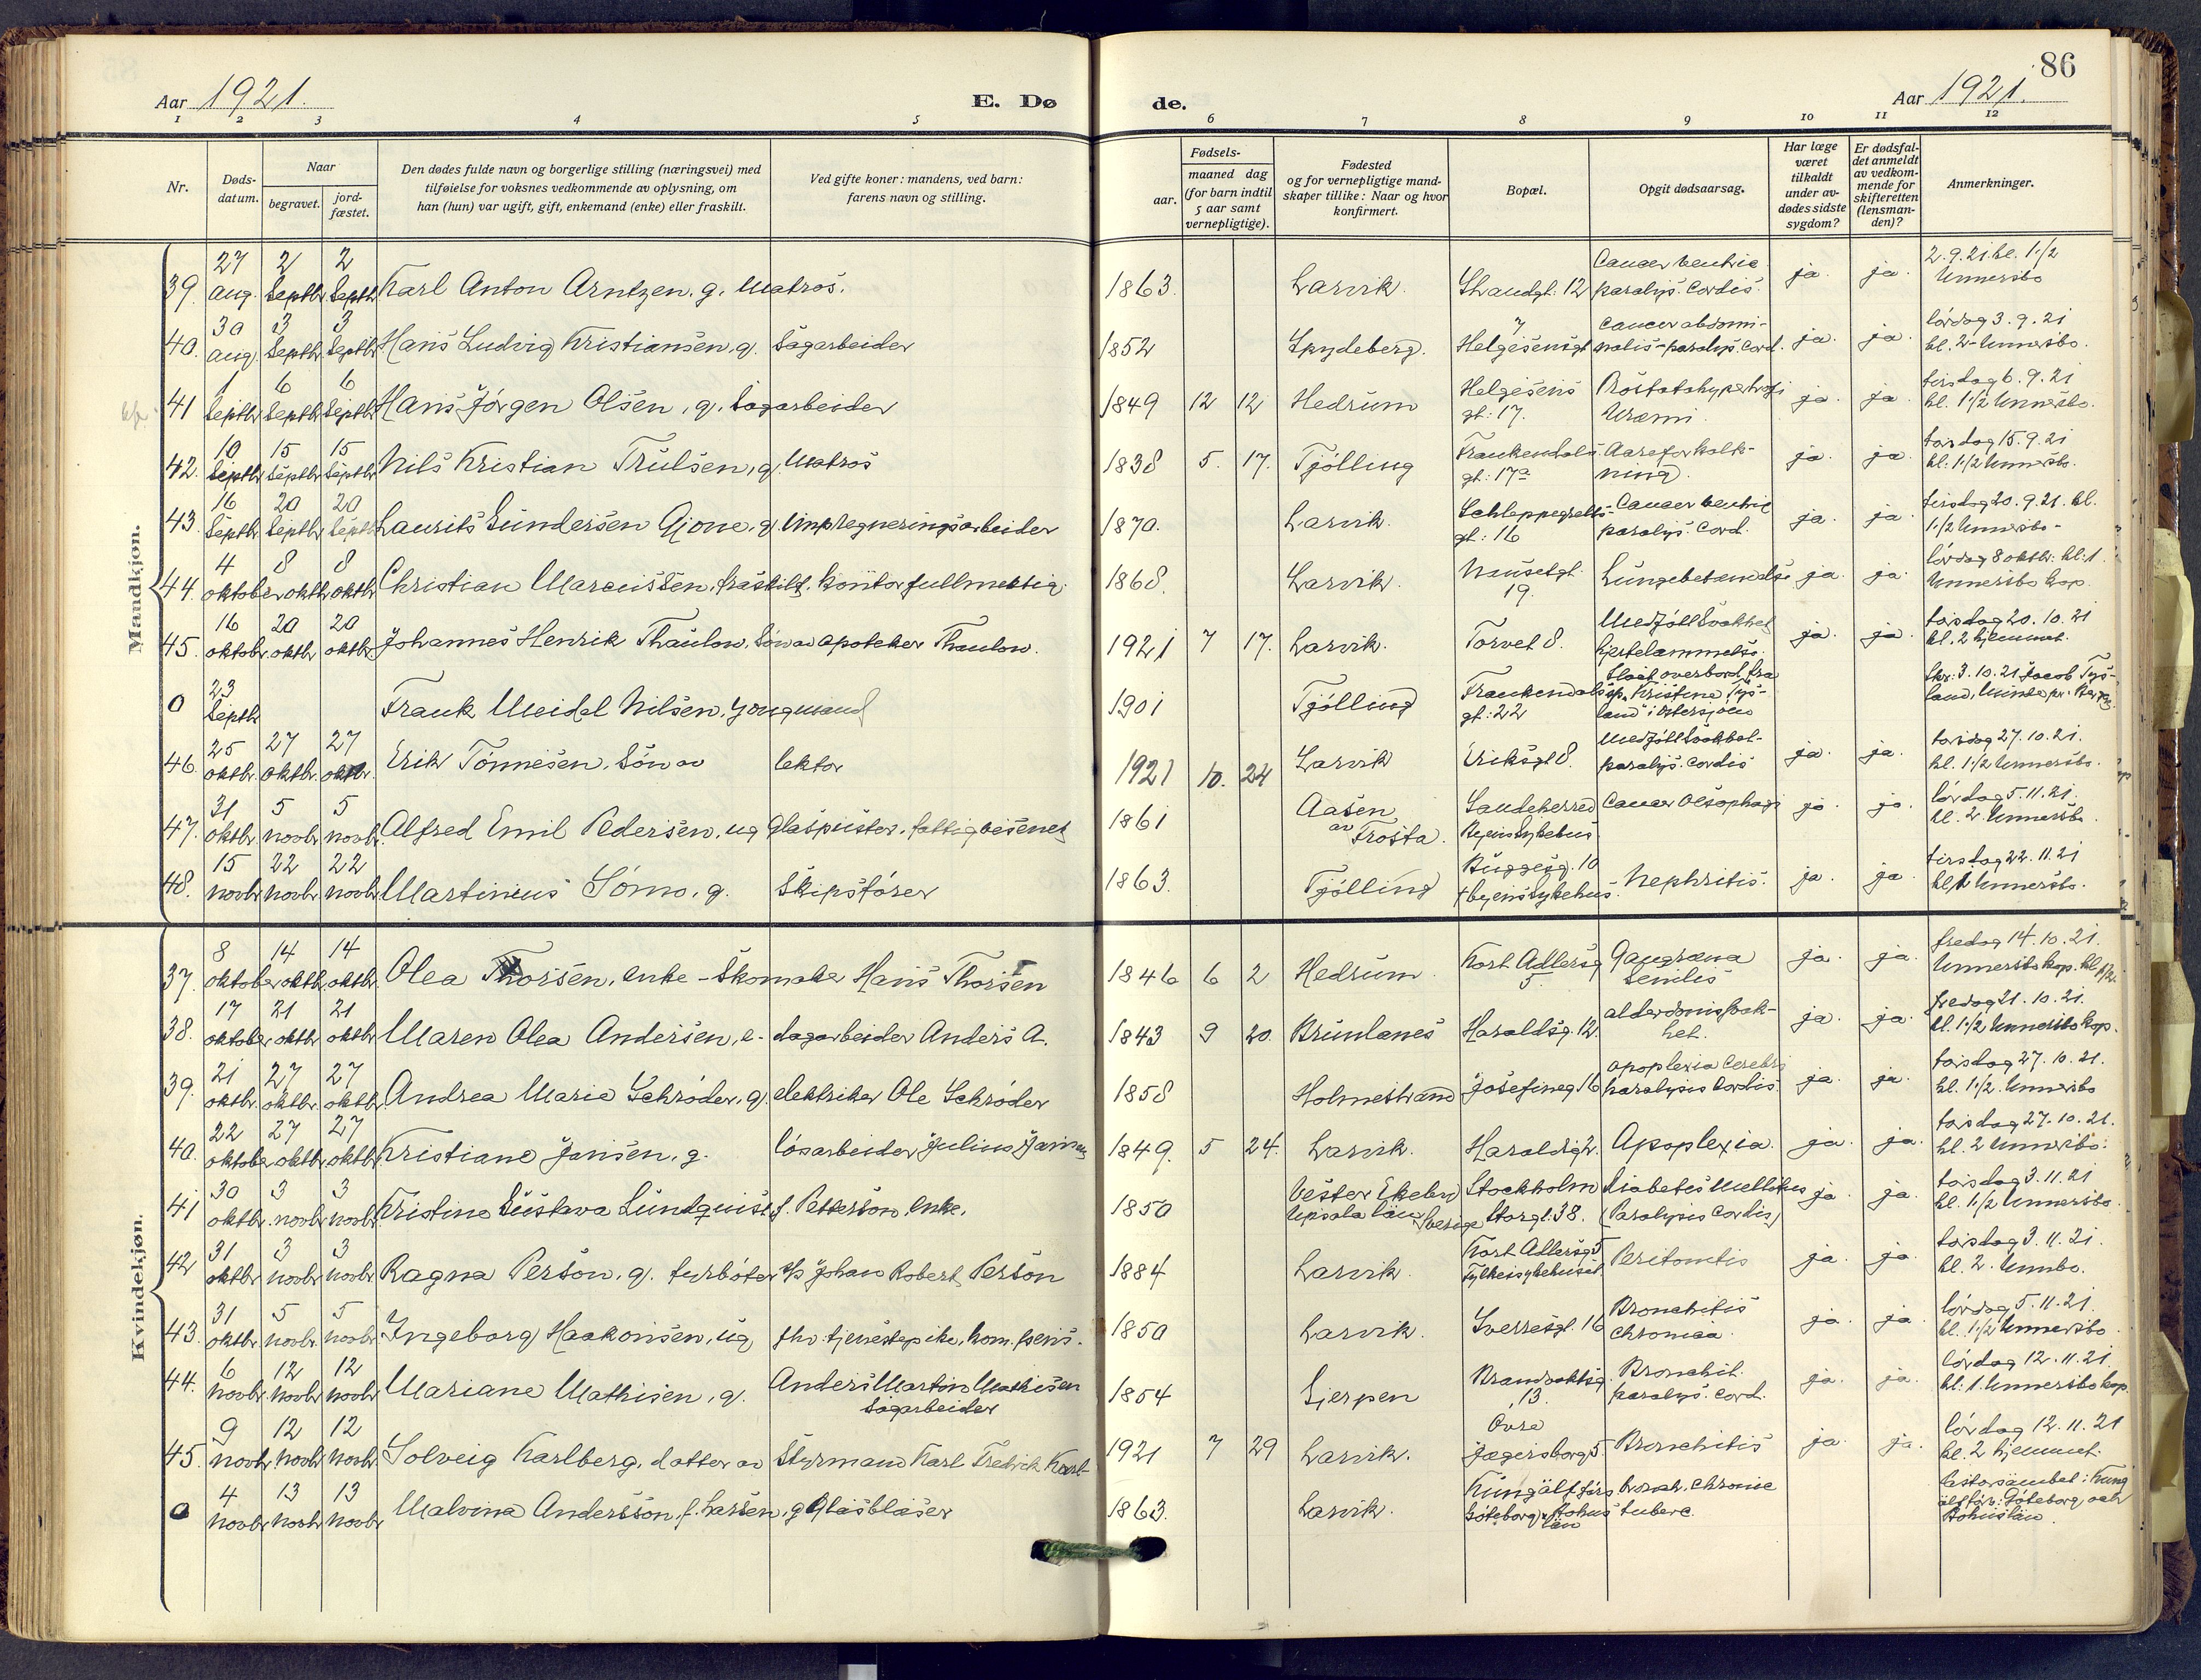 86
Aar 1921.
E. Dø
de.
Aar 1921.
1 2 3 4 5 6 7 8 9 10 11 12
Nr.
Døds-
datum.
Naar
begravet.
jord-
fæstet.
Den dødes fulde navn og borgerlige stilling (næringsvei) med
tilføielse for voksnes vedkommende av oplysning, om
han (hun) var ugift, gift, enkemand (enke) eller fraskilt.
Ved gifte koner: mandens, ved barn:
farens navn og stilling.
Fødsels-
aar.
maaned dag
(for barn indtil
5 aar samt
vernepligtige).
Fødested
og for vernepligtige mand-
skaper tillike: Naar og hvor
konfirmert.
Bopæl.
Opgit dødsaarsag.
Har læge
været
tilkaldt
under av-
dødes sidste
sygdom?
Er dødsfal-
det anmeldt
av vedkom-
mende for
skifteretten
(lensman-
den)?
Anmerkninger.
Mandkjøn.
27 2 2 Cancer ventric. 2.9.21 kl. 1 1/2
39. aug. Septbr Septbr Karl Anton Arntzen. g. Matros. 1863. Larvik. Strandgt. 12 paralys. Cordis. ja. ja. Unnersbo
30 3 3 7 Cancer abdomi- lördag 3.9.21
40. aug. Septbr Septbr Hans Ludvig Kristiansen. g. Sagarbeider 1852 Spydeberg. Helgesensgt nalis - paralys. Cord. ja. ja. kl. 2 - Unnersbo.
1 6 6 Helgesens Prostatahypertrofi tirsdag 6.9.21
41 Septbr Septbr Septbr Hans Jörgen Olsen, g. Sagarbeider 1849 12 12 Hedrum gt: 17. Uræmi. ja. ja. kl. 1 1/2 Unnersbo.
10 15 15 Frankendals Aareforkalk- torsdag 15.9.21
42. Septbr Septbr Septbr Nils Kristian Trulsen, g. Matros 1838 5. 17. Tjölling gt: 17a ning. ja. ja. kl. 1 1/2 Unnersbo.
16 20 20 Schleppegrells- Cancer ventric tirsdag 20.9.21. kl.
43. Septbr Septbr Septbr Laurits Gundersen Gjone, g. Impregneringsarbeider 1870. Larvik. gt: 16 paralys. Cord. ja. ja. 1 1/2 Unnersbo -
4 8 8 Nansetgt. lördag 8 oktbr: kl: 1.
44. oktober oktbr oktbr Christian Marcussen, fraskilt. kontorfullmektig. 1868. Larvik. 19. Lungebetændelse ja. ja. Unnersbo kap.
16 20 20 Medfött Svakhet torsdag 20.10.21
45. oktobr. oktbr. oktbr Johannes Henrik Thaulow. Sön av apoteker Thaulow. 1921 7 17. Larvik. Torvet 8. hjertelammelse. ja. ja. kl. 2 hjemmet.
23 Frankendals Slaat overbord fra Skr: 3.10.21 Jacob Tys-
0 Septbr Frank Meidel Nilsen. yongmand 1901 Tjölling gt: 22 Kristine Tys- land" i Östersjöen land,
25 27 27 Medfött Svakhet- torsdag 27.10.21.
46. oktbr. oktbr. oktbr. Erik Tönnesen. Sön av lektor 1921 10. 24 Larvik Eriksgt 8. paralys. Cordis ja. ja. kl. 1 1/2 Unnersbo.
31 5 5 Aasen Sandeherred lördag 5.11.21.
47. oktbr. novbr. novbr. Alfred Emil Pedersen, ug Glaspuster. fattigvesenet 1861 av Frosta. Byens Sykehus Cancer Oesophagi ja. ja. kl. 2. Unnersbo.
15 22 22 Buggesg. 10 tirsdag 22.11.21
48. novbr novbr novbr Martinius Sömo, g. Skipsförer 1863. Tjölling † byens Sykehus. Nephritis. ja. ja. kl 1 Unnersbo.
Kvindekjøn.
8 14 14 Kort Adlersg Gangræna fredag 14.10.21.
37. oktober oktbr. oktbr. Olea Thorsen, enke - Skomaker Hans Thorsen 1846 6 2 Hedrum 5. Senilis ja. ja. Unnersbo kap. kl 1 1/2.
17 21 21 alderdomssvak- fredag 21.10.21.
38. oktober oktbr oktbr Maren Olea Andersen, e. - dagarbeider Anders A. 1843 9 20. Brunlanes Haraldsg. 12. het. ja. ja. kl. 1 1/2 Unnersbo kap.
21 27 27 apoplexia Cerebri torsdag 27.10.21.
39. oktbr. oktbr. oktbr. Andrea Marie Schröder, g. elektriker Ole Schröder 1858 Holmestrand Josefineg. 16 paralysis Cordis. ja. ja. kl. 1 1/2. Unnersbo
22 27 27 torsdag 27.10.21.
40. oktober oktbr. oktbr. Kristiane Jansen, g. lösarbeider Julius Jansen 1849. 5 24. Larvik. Haraldsg 2. Apoplexia. ja. ja. kl. 2 Unnersbo.
30 3 3 Vester Ekeby Stockholm Diabetes Mellitus torsdag 3.11.21
41 oktbr. novbr. novbr. Kristine Gustava Lundquist f. Petterson. Enke. 1850 Upsala län Sverige Storgt. 38. (Paralysis Cordis) ja. ja. kl. 1 1/2 Unnersbo.
31 3 3 Kort Adlersg 5 torsdag 3.11.21.
42 oktbr novbr novbr Ragna Person, g. fyrböter Johan Robert Person 1884 Larvik. Fylkessykehuset Peritonitis ja. ja. kl. 2. Unnbo.
31 5 5 Bronchitis lördag 5.11.21.
43. oktbr. novbr. novbr. Ingeborg Haakonsen, ug fhv. tjenestepike, kom. pens. 1850 Larvik. Sverresgt. 16 Chronica. ja. ja. kl. 1 1/2 Unnersbo
6 12 12 Anders Martin Mathisen Brandvaktsg. Bronchit. lördag 12.11.21.
44. novbr. novbr. novbr Mariane Mathisen, g. Sagarbeider 1854 Gjerpen 13. paralys. Cord. ja. ja. kl: 1. Unnersbo kap.
9 12 12 Övre lördag 12.11.21
45. novbr novbr novbr. Solveig Karlberg, datter av Styrmand Karl Fredrik Karl- 1921 7 29 Larvik. Jegersborg. 5 Bronchitis ja. ja. kl. 2 hjemmet.
4 13 13 Kungälf förs bronch. Chronic
0 novbr novbr novbr Malvina Andersson, f. Larsen, g Glasblåser 1863. Larvik. Göteborg & Bohus län tuberc. älf förs: Göteborg och
Bohuslän.